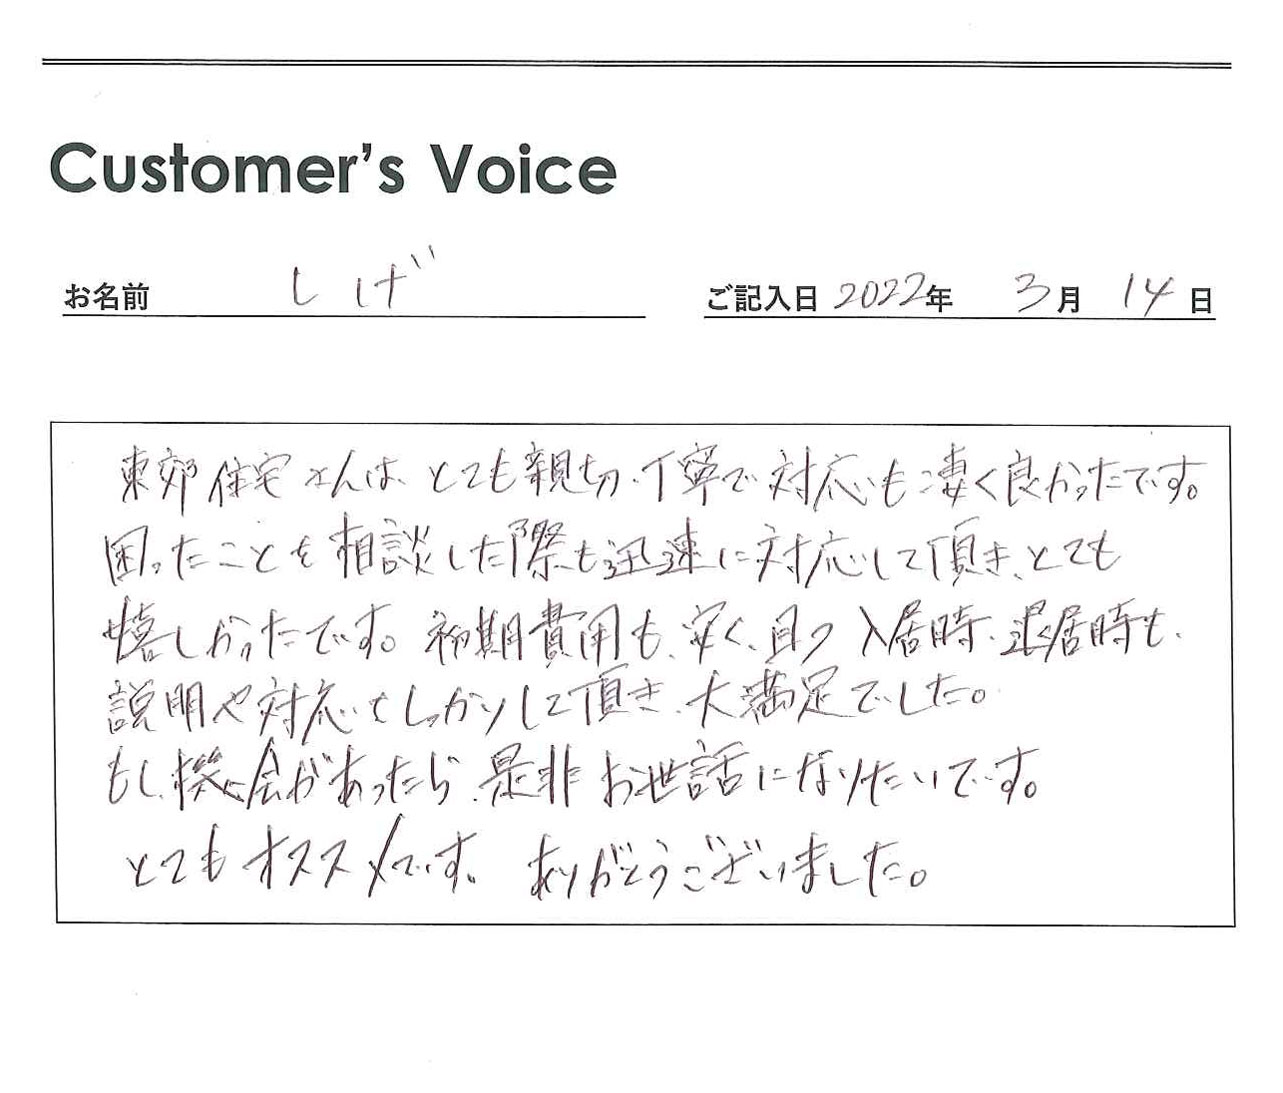 Customer's Voice
お名前 しげ ご記入日 2022年 3月 14日
東郊住宅さんは、とても親切、丁寧で対応も凄く良かったです。
困ったことを相談した際も迅速に対応して頂き、とても
嬉しかったです。初期費用も、安く、且つ 入居時、退居時も、
説明や対応もしっかりして頂き、大満足でした。
もし、機会があったら、是非お世話になりたいです。
とてもオススメです。ありがとうございました。